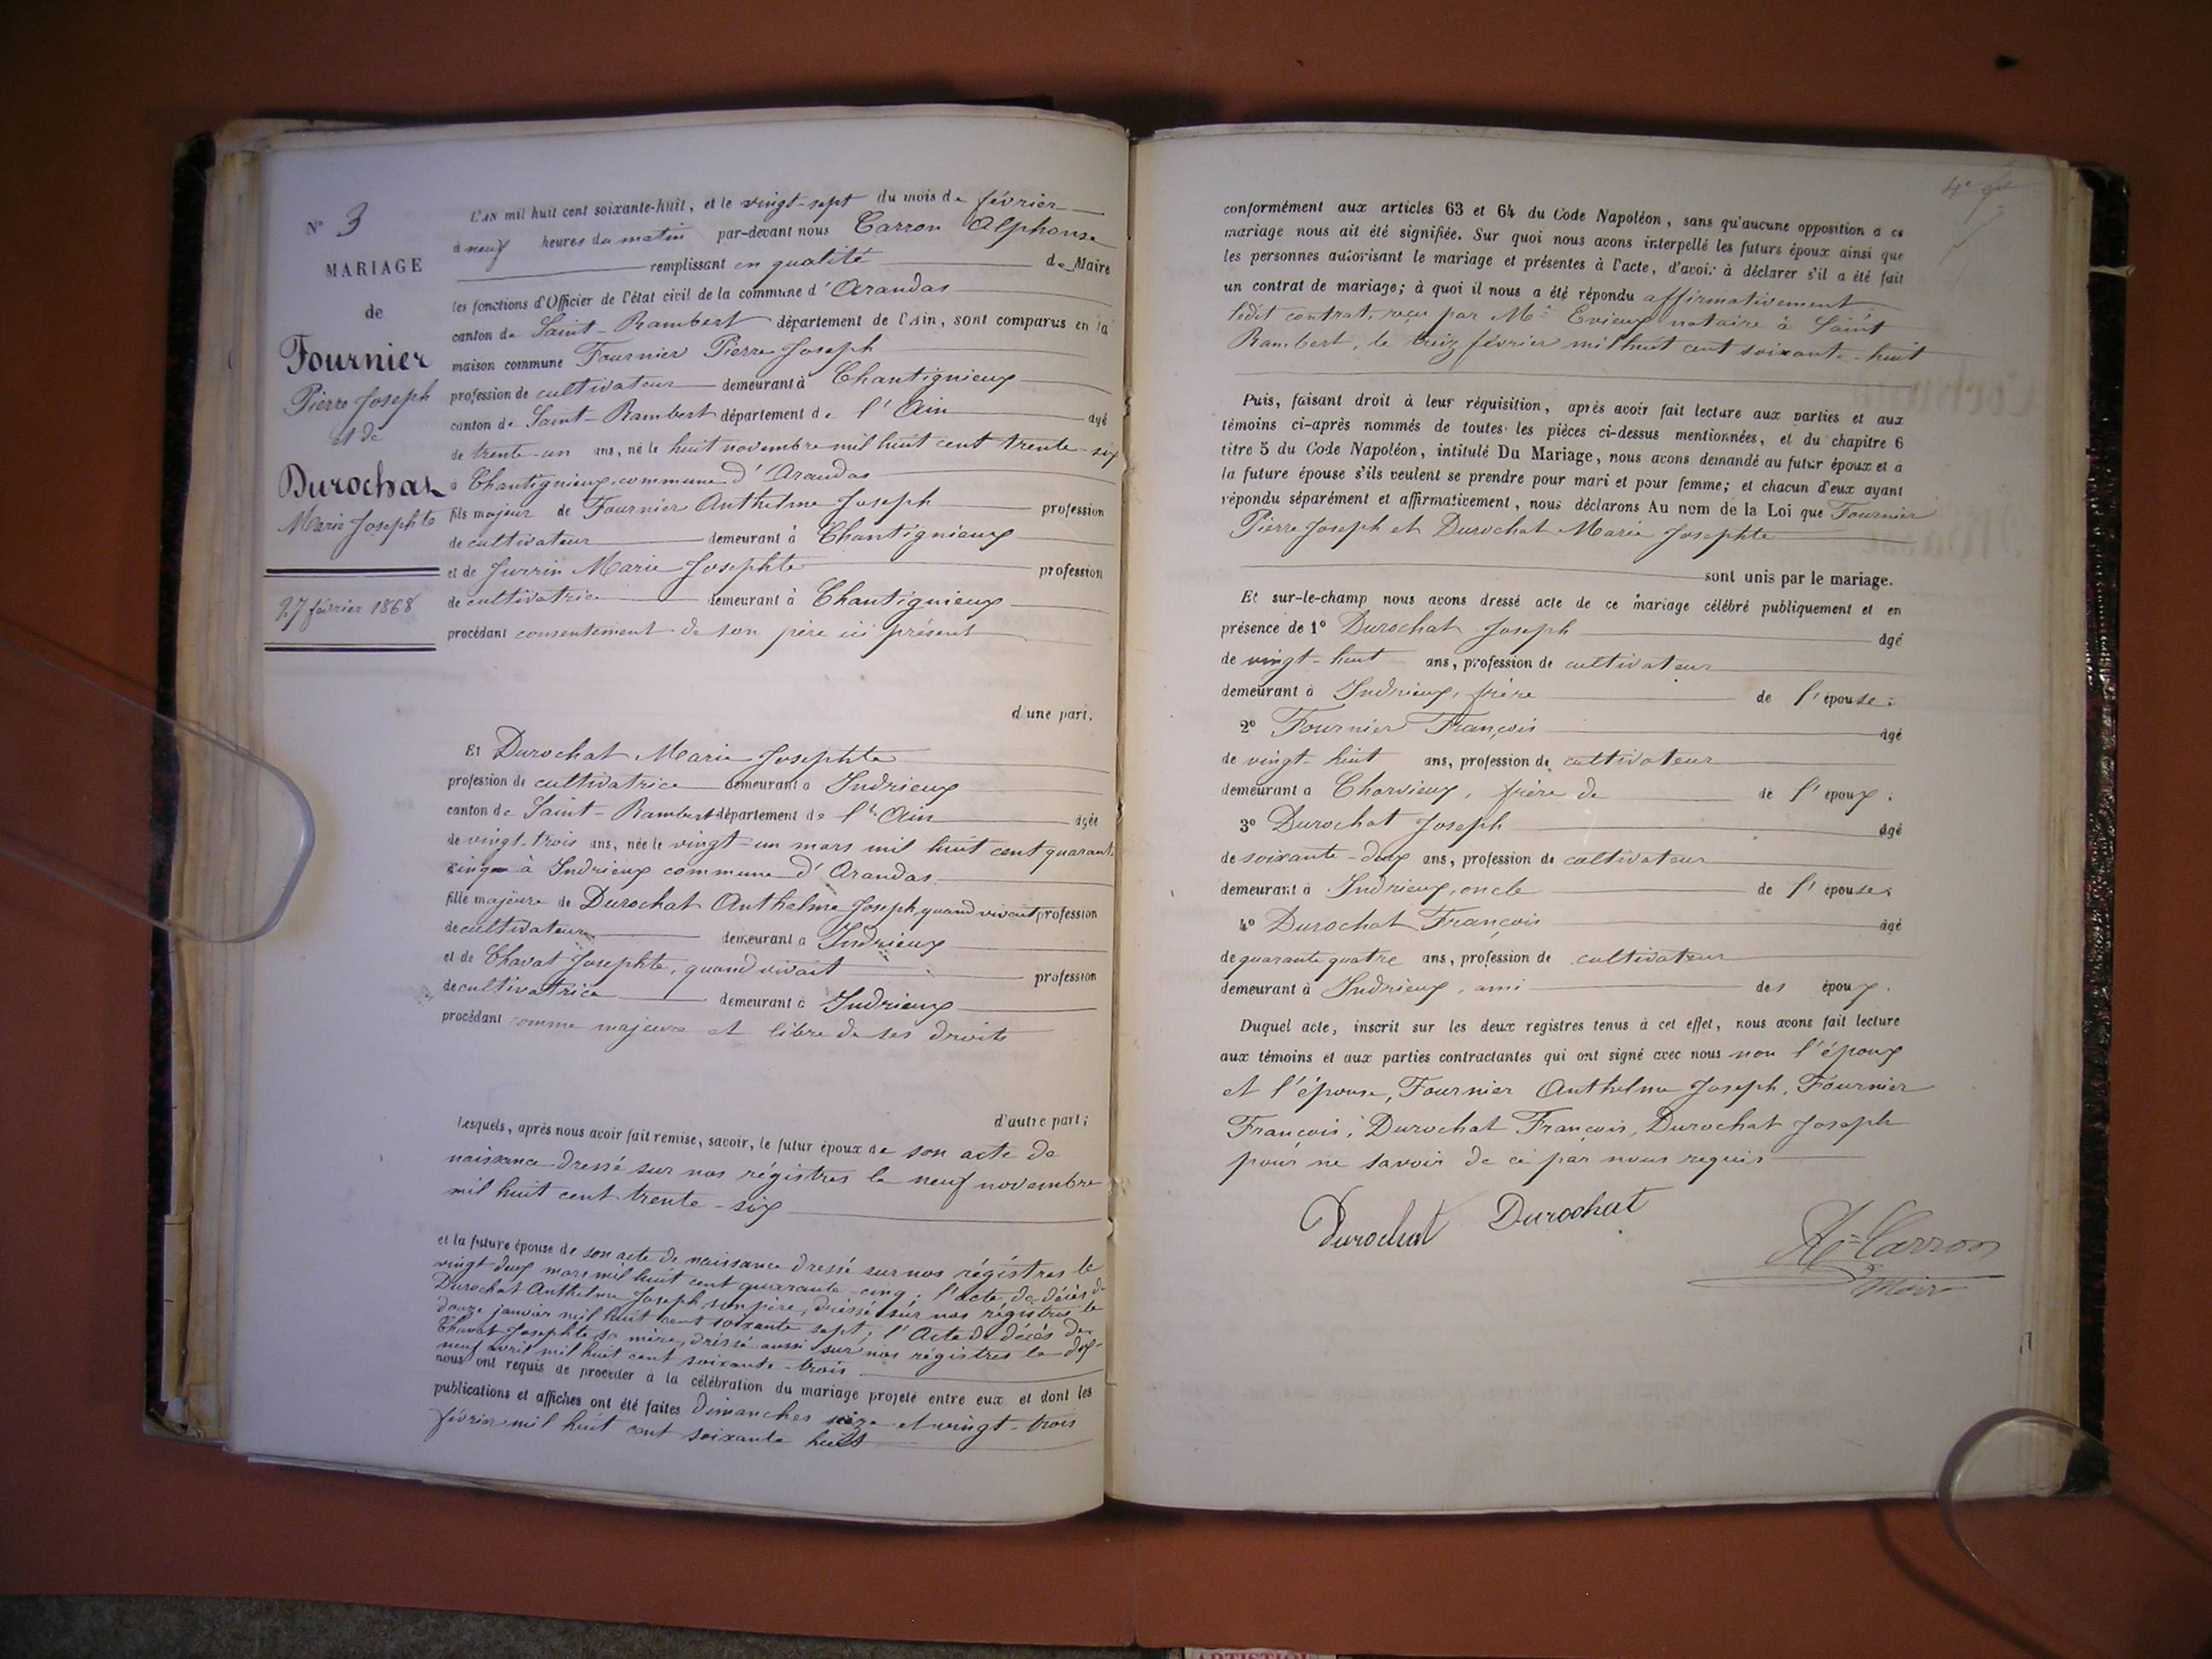 N° 3
MARIAGE
de
Fournier
Pierre Joseph
et de
Durochat
Marie Josephte
27 février 1868
L'AN mil huit cent soixante-huit, et le vingt-sept du mois de février
à neuf heures du matin par-devant nous Carron Alphonse
remplissant en qualité de Maire
les fonctions d'Officier de l'état civil de la commune d'Arandas
canton de Saint-Rambert département de l'Ain, sont comparus en la
maison commune Fournier Pierre Joseph
profession de cultivateur demeurant à Chantignieux
canton de Saint-Rambert département de l'Ain agé
de trente-un ans, né le huit novembre mil huit cent trente-six
à Chantignieux commune d'Arandas
fils majeur de Fournier Anthelme Joseph profession
de cultivateur demeurant à Chantignieux
et de Jurrin Marie Josephte profession
de cultivatrice demeurant à Chantignieux
procédant consentement de son père ici présent
d'une part,
Et Durochat Marie Josephte
profession de cultivatrice demeurant à Indrieux
canton de Saint-Rambert département de l'Ain agée
de vingt-trois ans, née le vingt-un mars mil huit cent quarante
cinq à Indrieux commune d'Arandas
fille majeure de Durochat Anthelme Joseph, quand vivait profession
de cultivateur demeurant à Indrieux
et de Chavat Josephte, quand vivait profession
de cultivatrice demeurant à Indrieux
procédant comme majeure et libre de ses droits
d'autre part;
Lesquels, après nous avoir fait remise, savoir, le futur époux de son acte de
naissance dressé sur nos régistres le neuf novembre
mil huit cent trente-six
et la future épouse de son acte de naissance dressé sur nos régistres le
vingt deux mars mil huit cent quarante-cinq; l'acte de décès de
Durochat Anthelme Joseph son père, dressé sur nos régistres le
douze janvier mil huit cent soixante sept; l'Acte de décès de
Chavat Josephte sa mère, dréssé aussi sur nos régistres le dix-
neuf avril mil huit cent soixante-trois
nous ont requis de procéder à la célébration du mariage projeté entre eux et dont les
publications et affiches ont été faites dimanches seize et vingt-trois
février mil huit cent soixante huit
conformément aux articles 63 et 64 du Code Napoléon, sans qu'aucune opposition à ce
mariage nous ait été signifiée. Sur quoi nous avons interpellé les futurs époux ainsi que
les personnes autorisant le mariage et présentes à l'acte, d'avoir à déclarer s'il a été fait
un contrat de mariage; à quoi il nous a été répondu affirmativement
ledit contrat, reçu par Me Evieux notaire à Saint
Rambert, le treize février mil huit cent soixante-huit
Puis, faisant droit à leur réquisition, après avoir fait lecture aux parties et aux
témoins ci-après nommés de toutes les pièces ci-dessus mentionnées, et du chapitre 6
titre 5 du Code Napoléon, intitulé Du Mariage, nous avons demandé au futur époux et à
la future épouse s'ils veulent se prendre pour mari et pour femme; et chacun d'eux ayant
répondu séparément et affirmativement, nous déclarons Au nom de la Loi que Fournier
Pierre Joseph et Durochat Marie Josephte
sont unis par le mariage.
Et sur-le-champ nous avons dressé acte de ce mariage célébré publiquement et en
présence de 1° Durochat Joseph âgé
de vingt-huit ans, profession de cultivateur
demeurant à Indrieux, frère de l'épouse;
2° Fournier François âgé
de vingt-huit ans, profession de cultivateur
demeurant à Charvieux, frère de de l'époux.
3° Durochat Joseph âgé
de soixante-deux ans, profession de cultivateur
demeurant à Indrieux, oncle de l'épouse;
4° Durochat François âgé
de quarante quatre ans, profession de cultivateur
demeurant à Indrieux, ami des époux.
Duquel acte, inscrit sur les deux registres tenus à cet effet, nous avons fait lecture
aux témoins et aux parties contractantes qui ont signé avec nous non l'époux
et l'épouse, Fournier Anthelme Joseph, Fournier
François, Durochat François, Durochat Joseph
pour ne savoir de ce par nous requis
Durochat Durochat
Carron
Maire